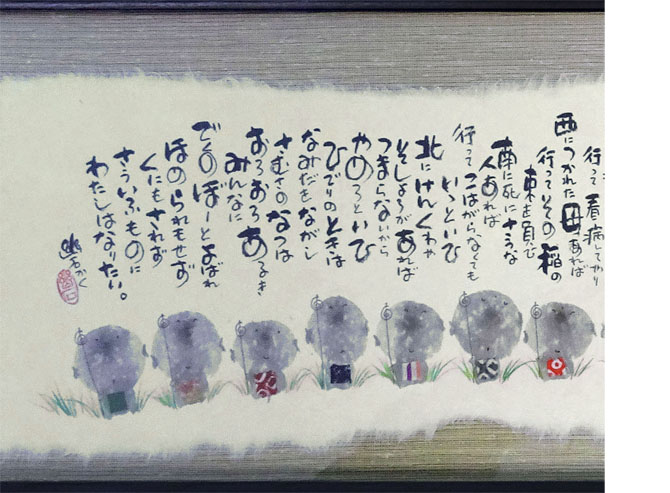 行って看病してやり
西につかれた母あれば
行ってその稲の
束を負ひ
南に死にさうな
人あれば
行ってこはがらなくても
いゝといひ
北にけんくわや
そしょうがあれば
つまらないから
やめろといひ
ひでりのときは
なみだをながし
さむさのなつは
おろおろあるき
みんなに
でくのぼーとよばれ
ほめられもせず
くにもされず
さういふものに
わたしはなりたい。